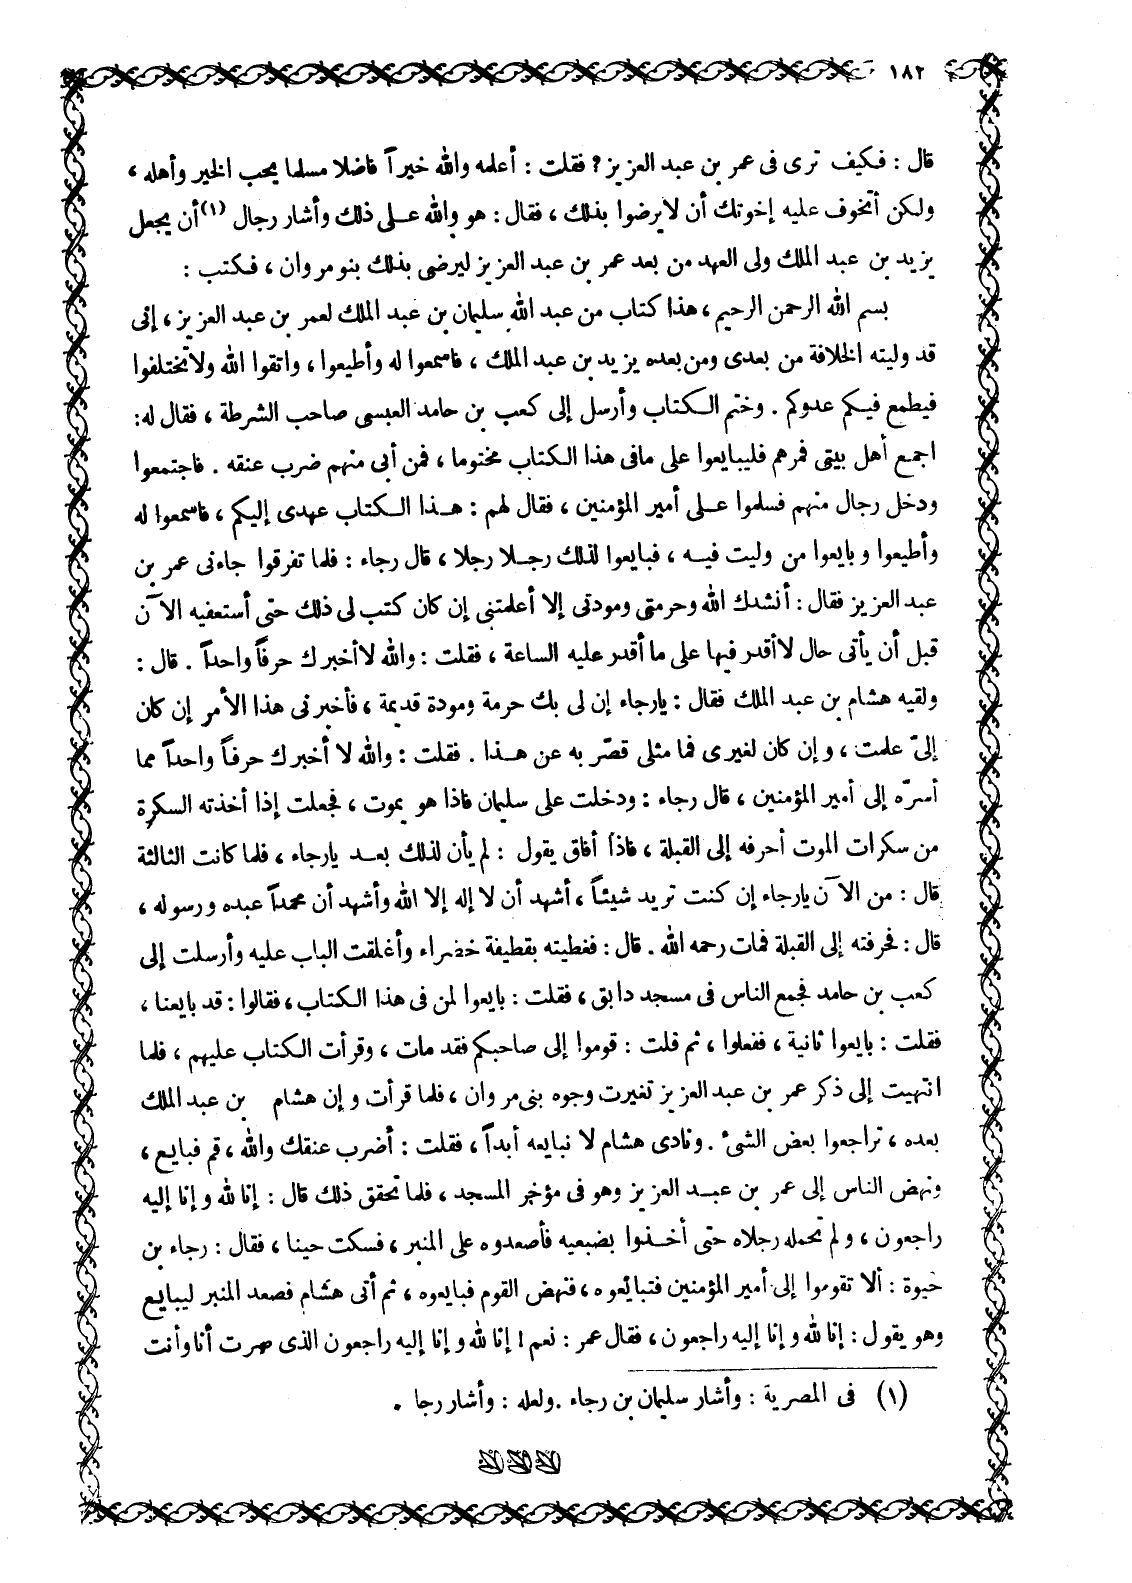 ١٨٢
قال : فكيف ترى فى عمر بن عبد العزيز ? فقلت : أعلمه والله خيراً فاضلا مسلما يحب الخير وأهله ،
ولكن أتخوف عليه إخوتك أن لا يرضوا بذلك ، فقال : هو والله على ذلك وأشار رجال (١) أن يجعل
يزيد بن عبد الملك ولى العهد من بعد عمر بن عبد العزيز ليرضى بذلك بنو مروان ، فكتب :
بسم الله الرحمن الرحيم ، هذا كتاب من عبد الله سليمان بن عبد الملك لعمر بن عبد العزيز ، إنى
قد وليته الخلافة من بعدى ومن بعده يزيد بن عبد الملك ، فاسمعوا له وأطيعوا ، واتقوا الله ولا تختلفوا
فيطمع فيكم عدوكم . وختم الكتاب وأرسل إلى كعب بن حامد العبسى صاحب الشرطة ، فقال له :
اجمع أهل بيتى فمرهم فليبايعوا على مافى هذا الكتاب مختوما ، فمن أبى منهم ضرب عنقه . فاجتمعوا
ودخل رجال منهم فسلموا على أمير المؤمنين ، فقال لهم : هذا الكتاب عهدى إليكم ، فاسمعوا له
وأطيعوا وبايعوا من وليت فيه ، فبايعوا لذلك رجلا رجلا ، قال رجاء : فلما تفرقوا جاءنى عمر بن
عبد العزيز فقال : أنشدك الله وحرمتى ومودتى إلا أعلمتنى إن كان كتب لى ذلك حتى أستعفيه الآن
قبل أن يأتى حال لا أقدر فيها على ما أقدر عليه الساعة ، فقلت : والله لا أخبرك حرفاً واحداً . قال :
ولقيه هشام بن عبد الملك فقال : يارجاء إن لى بك حرمة ومودة قديمة ، فأخبرنى هذا الأمر إن كان
إلىّ علمت ، وإن كان لغيرى فما مثلى قصّر به عن هذا . فقلت : والله لا أخبرك حرفاً واحداً مما
أسرّه إلى أمير المؤمنين ، قال رجاء : ودخلت على سليمان فاذا هو يموت ، فجعلت إذا أخذته السكرة
من سكرات الموت أحرفه إلى القبلة ، فاذا أفاق يقول : لم يأن لذلك بعد يارجاء ، فلما كانت الثالثة
قال : من الآن يارجاء إن كنت تريد شيئاً ، أشهد أن لا إله إلا الله وأشهد أن محمداً عبده ورسوله ،
قال : فحرفته إلى القبلة فمات رحمه الله . قال : فغطيته بقطيفة خضراء وأغلقت الباب عليه وأرسلت إلى
كعب بن حامد فجمع الناس فى مسجد دابق ، فقلت : بايعوا لمن فى هذا الكتاب ، فقالوا : قد بايعنا ،
فقلت : بايعوا ثانية ، ففعلوا ، ثم قلت : قوموا إلى صاحبكم فقد مات ، وقرأت الكتاب عليهم ، فلما
انتهيت إلى ذكر عمر بن عبد العزيز تغيرت وجوه بنى مروان ، فلما قرأت وإن هشام بن عبد الملك
بعده ، تراجعوا بعض الشىء . ونادى هشام لا نبايعه أبداً ، فقلت : أضرب عنقك والله ، قم فبايع ،
ونهض الناس إلى عمر بن عبد العزيز وهو فى مؤخر المسجد ، فلما تحقق ذلك قال : إنا لله وإنا إليه
راجعون ، ولم تحمله رجلاه حتى أخذوا بضبعيه فأصعدوه على المنبر ، فسكت حينا ، فقال : رجاء بن
حيوة : ألا تقوموا إلى أمير المؤمنين فتبايعوه ، فنهض القوم فبايعوه ، ثم أتى هشام فصعد المنبر ليبايع
وهو يقول : إنا لله وإنا إليه راجعون ، فقال عمر : نعم ! إنا لله وإنا إليه راجعون الذى صرت أنا وأنت
(١) فى المصرية : وأشار سليمان بن رجاء . ولعله : وأشار رجا .